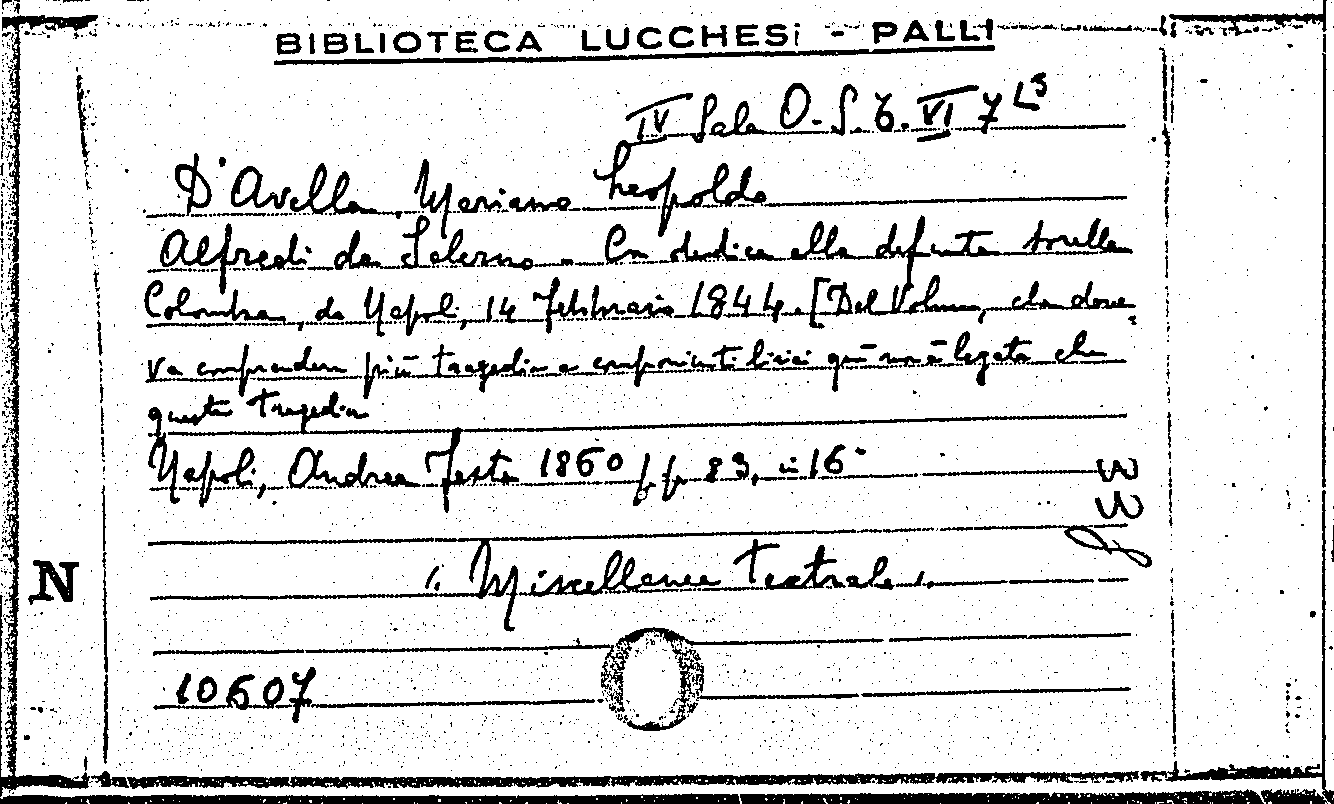 BIBLIOTECA LUCCHESi - PALLI
IV Sala O. S. 6. VI 7 L3
D'Avella, Mariano Leopoldo
Alfredi da Salerno - Con dedica alla defunta sorella
Colomba, da Napoli, 14 Febbraio 1844. [Del Volume, che dove-
va comprendere più tragedie e componimenti lirici qui non è legata che
questa tragedia
Napoli, Andrea Festa 1860 pp 83, in 16°
"Miscellanea Teatrale"
N
10607